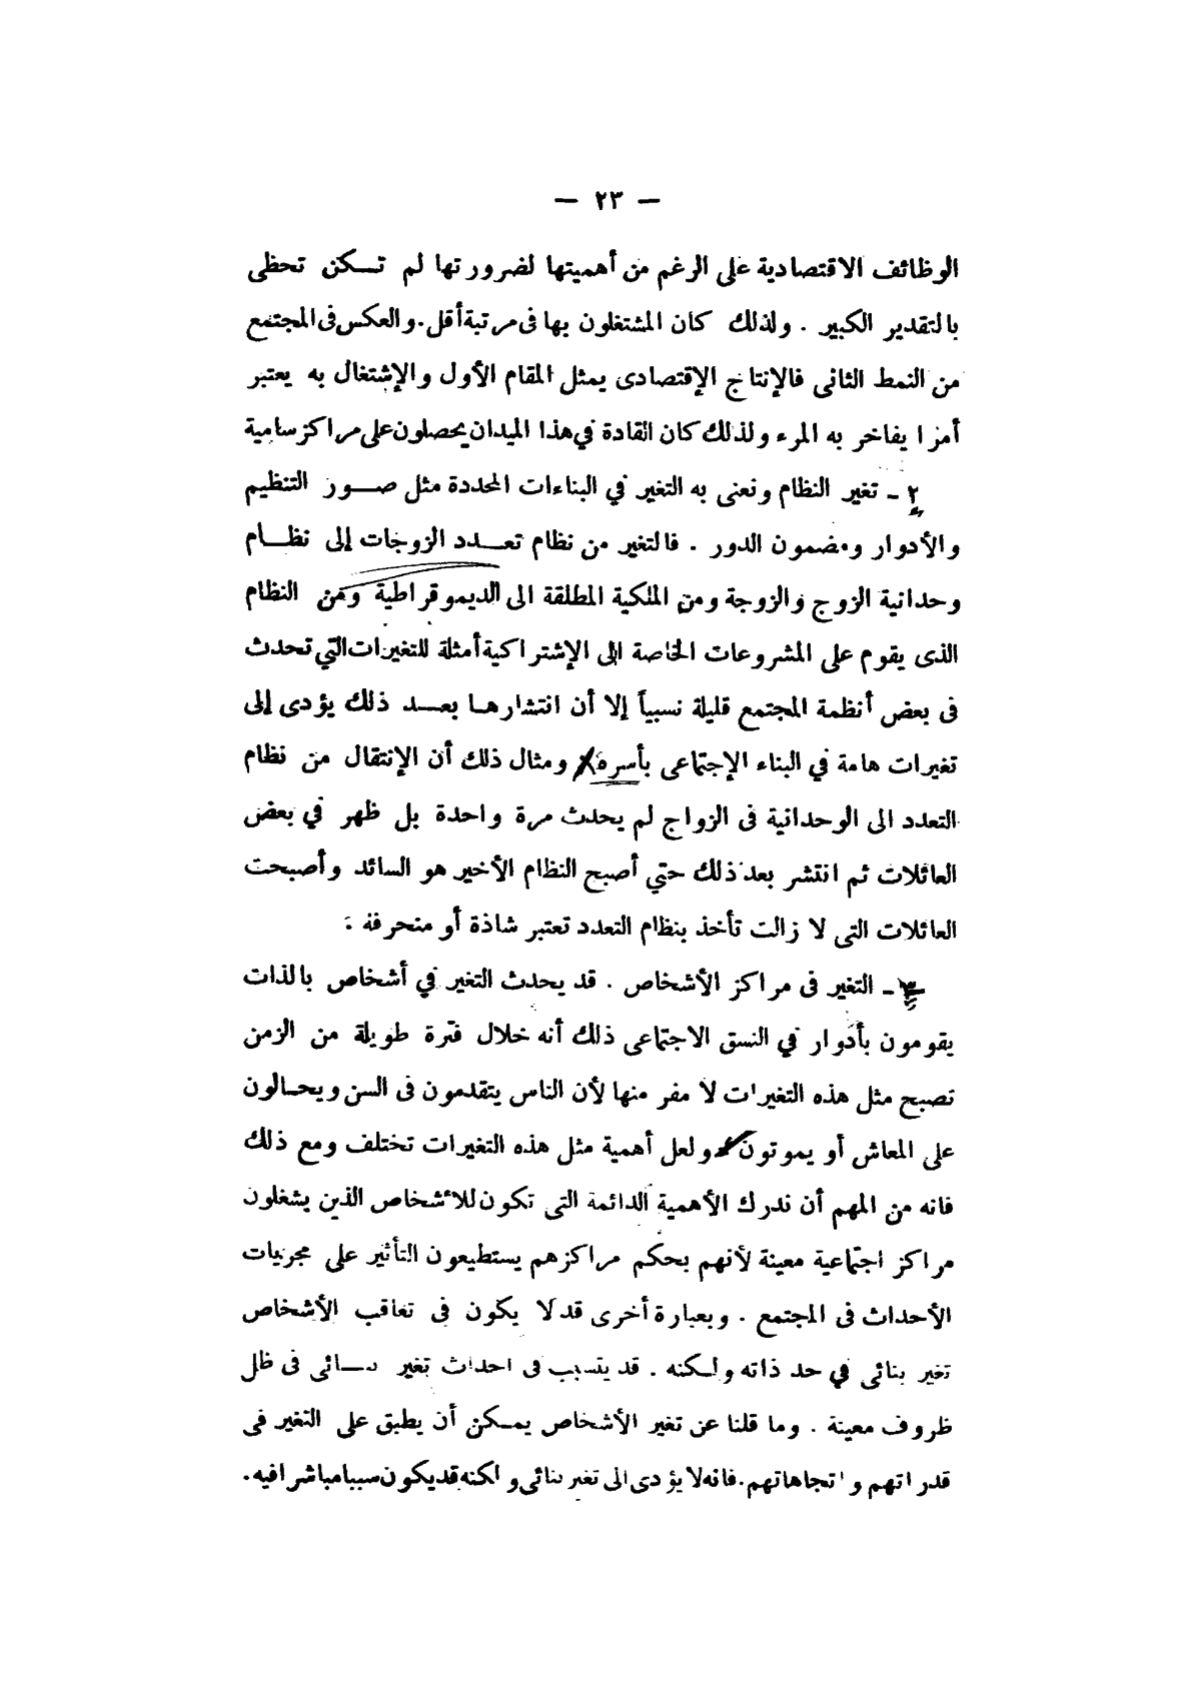 — ٢٣ —
الوظائف الاقتصادية على الرغم من أهميتها لضرورتها لم تكن تحظى
بالتقدير الكبير . ولذلك كان المشتغلون بها فى مرتبة أقل . والعكس فى المجتمع
من النمط الثانى فالإنتاج الإقتصادى يمثل المقام الأول والإشتغال به يعتبر
أمرا يفاخر به المرء ولذلك كان القادة في هذا الميدان يحصلون على مراكز سامية
٢ ـ تغير النظام ونعنى به التغير في البناءات المحددة مثل صور التنظيم
والأدوار ومضمون الدور . فالتغير من نظام تعدد الزوجات إلى نظام
وحدانية الزوج والزوجة ومن الملكية المطلقة الى الديموقراطية ومن النظام
الذى يقوم على المشروعات الخاصة الى الإشتراكية أمثلة للتغيرات التي تحدث
فى بعض أنظمة المجتمع قليلة نسبياً إلا أن انتشارها بعد ذلك يؤدى إلى
تغيرات هامة في البناء الإجتماعى بأسره ومثال ذلك أن الإنتقال من نظام
التعدد الى الوحدانية فى الزواج لم يحدث مرة واحدة بل ظهر في بعض
العائلات ثم انتشر بعد ذلك حتي أصبح النظام الأخير هو السائد وأصبحت
العائلات التى لا زالت تأخذ بنظام التعدد تعتبر شاذة أو منحرفة .
٣ ـ التغير فى مراكز الأشخاص . قد يحدث التغير في أشخاص بالذات
يقومون بأدوار في النسق الاجتماعى ذلك أنه خلال فترة طويلة من الزمن
تصبح مثل هذه التغيرات لا مفر منها لأن الناس يتقدمون فى السن ويحالون
على المعاش أو يموتون ولعل أهمية مثل هذه التغيرات تختلف ومع ذلك
فانه من المهم أن ندرك الأهمية الدائمة التى تكون للأشخاص الذين يشغلون
مراكز اجتماعية معينة لأنهم بحكم مراكزهم يستطيعون التأثير على مجريات
الأحداث فى المجتمع . وبعبارة أخرى قد لا يكون فى تعاقب الأشخاص
تغير بنائى في حد ذاته ولكنه . قد يتسبب فى احداث تغير بنائى فى ظل
ظروف معينة . وما قلنا عن تغير الأشخاص يمكن أن يطبق على التغير فى
قدراتهم واتجاهاتهم . فانه لا يؤدى الى تغير بنائى ولكنه قد يكون سببا مباشرا فيه .